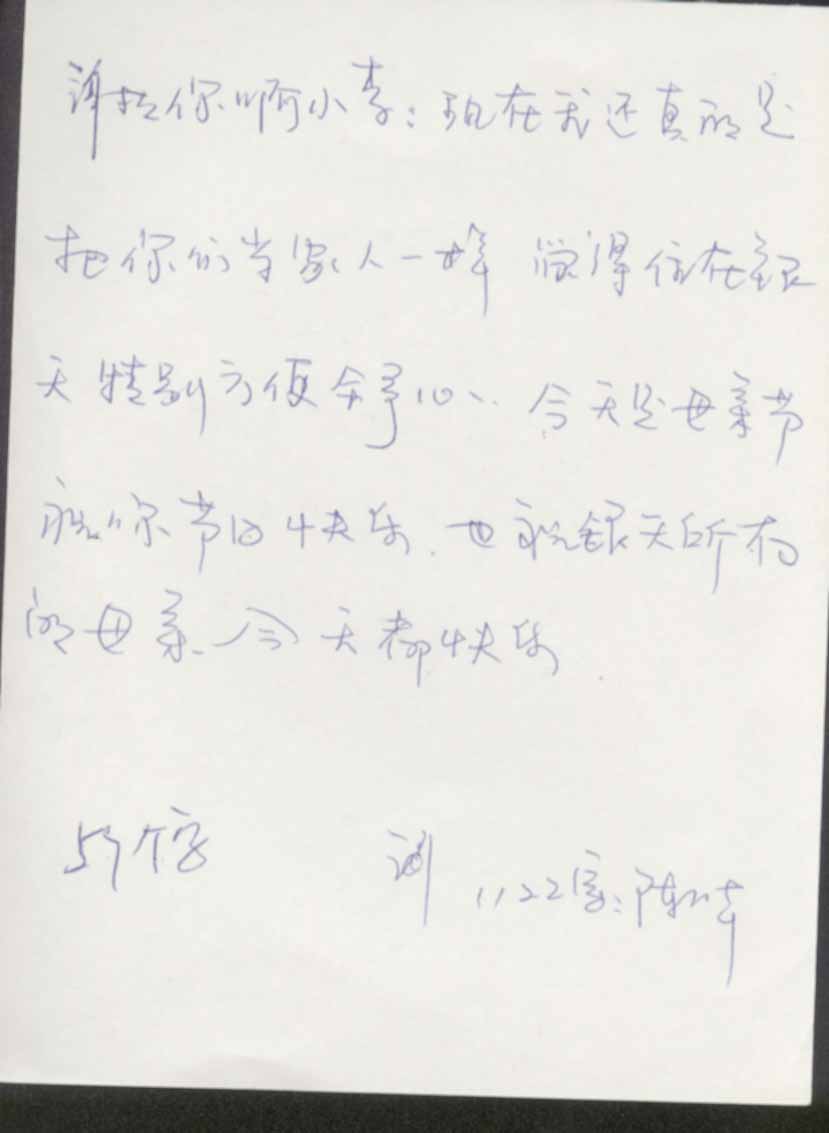 谢拉你啊小李:现在我还真的是
把你们当家人一样 觉得住在银
天特别方便舒心、今天是母亲节
祝你节日快乐.也祝银天所有
的母亲、今天都快乐.
59个字
1122室:陈